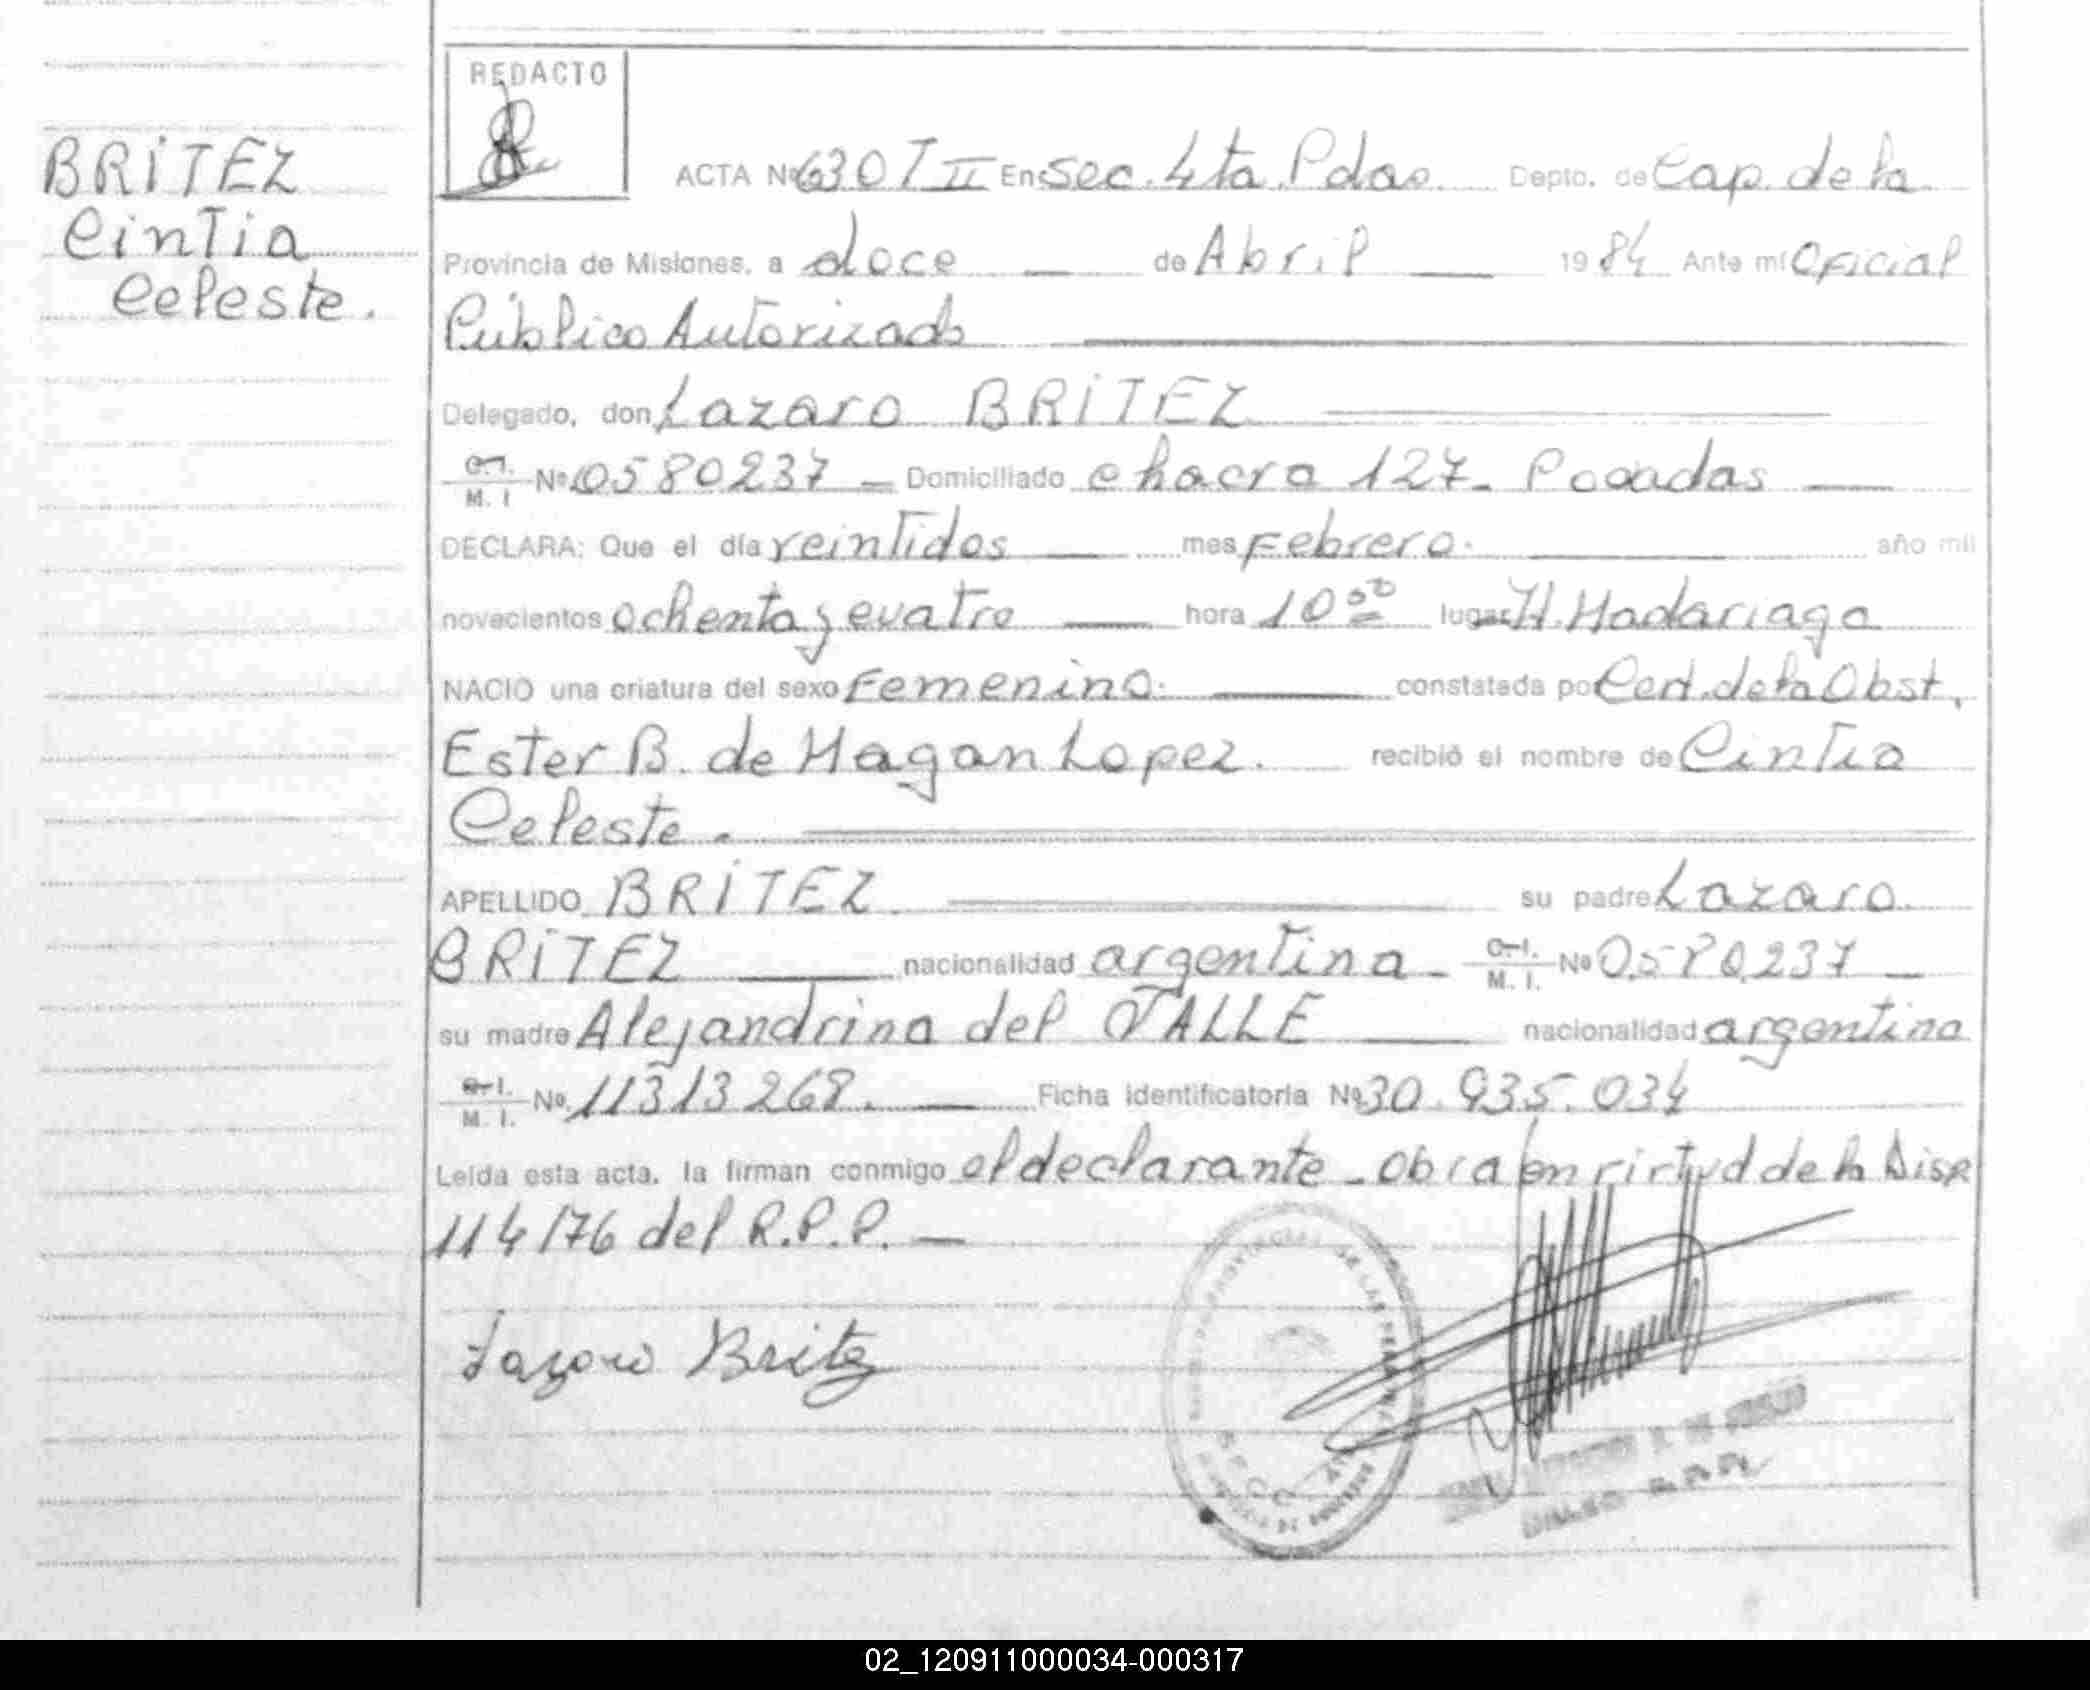 BRITEZ
Cintia
Celeste.
REDACTO
ACTA Nº 630 T II En Sec. 4ta. Pdas. Depto. de Cap. de la
Provincia de Misiones, a doce — de Abril — 1984 Ante mí Oficial
Público Autorizado
Delegado, don Lazaro BRITEZ
C.I. M. I Nº 0580237 — Domiciliado chacra 127. Posadas —
DECLARA: Que el día veintidos — mes Febrero. — año mil
novecientos ochenta y cuatro — hora 10 00 lugar H. Madariaga
NACIO una criatura del sexo Femenino. — constatada por Cert. de la Obst.
Ester B. de Magan Lopez. recibió el nombre de Cintia
Celeste.
APELLIDO BRITEZ su padre Lazaro
BRITEZ — nacionalidad argentina - C.I. M. I. Nº 0.580.237 —
su madre Alejandrina del VALLE — nacionalidad argentina
C.I. M. I. Nº 11313268. — Ficha identificatoria Nº 30.935.034
Leída esta acta, la firman conmigo el declarante - Obra en virtud de la Disp
114/76 del R.P.P. —
Lazaro Britez
02_120911000034-000317